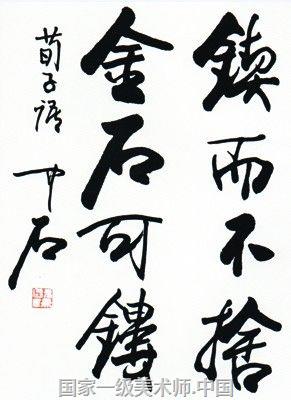 鍥而不捨
金石可鏤
荀子語
中石
国家一级美术师.中国